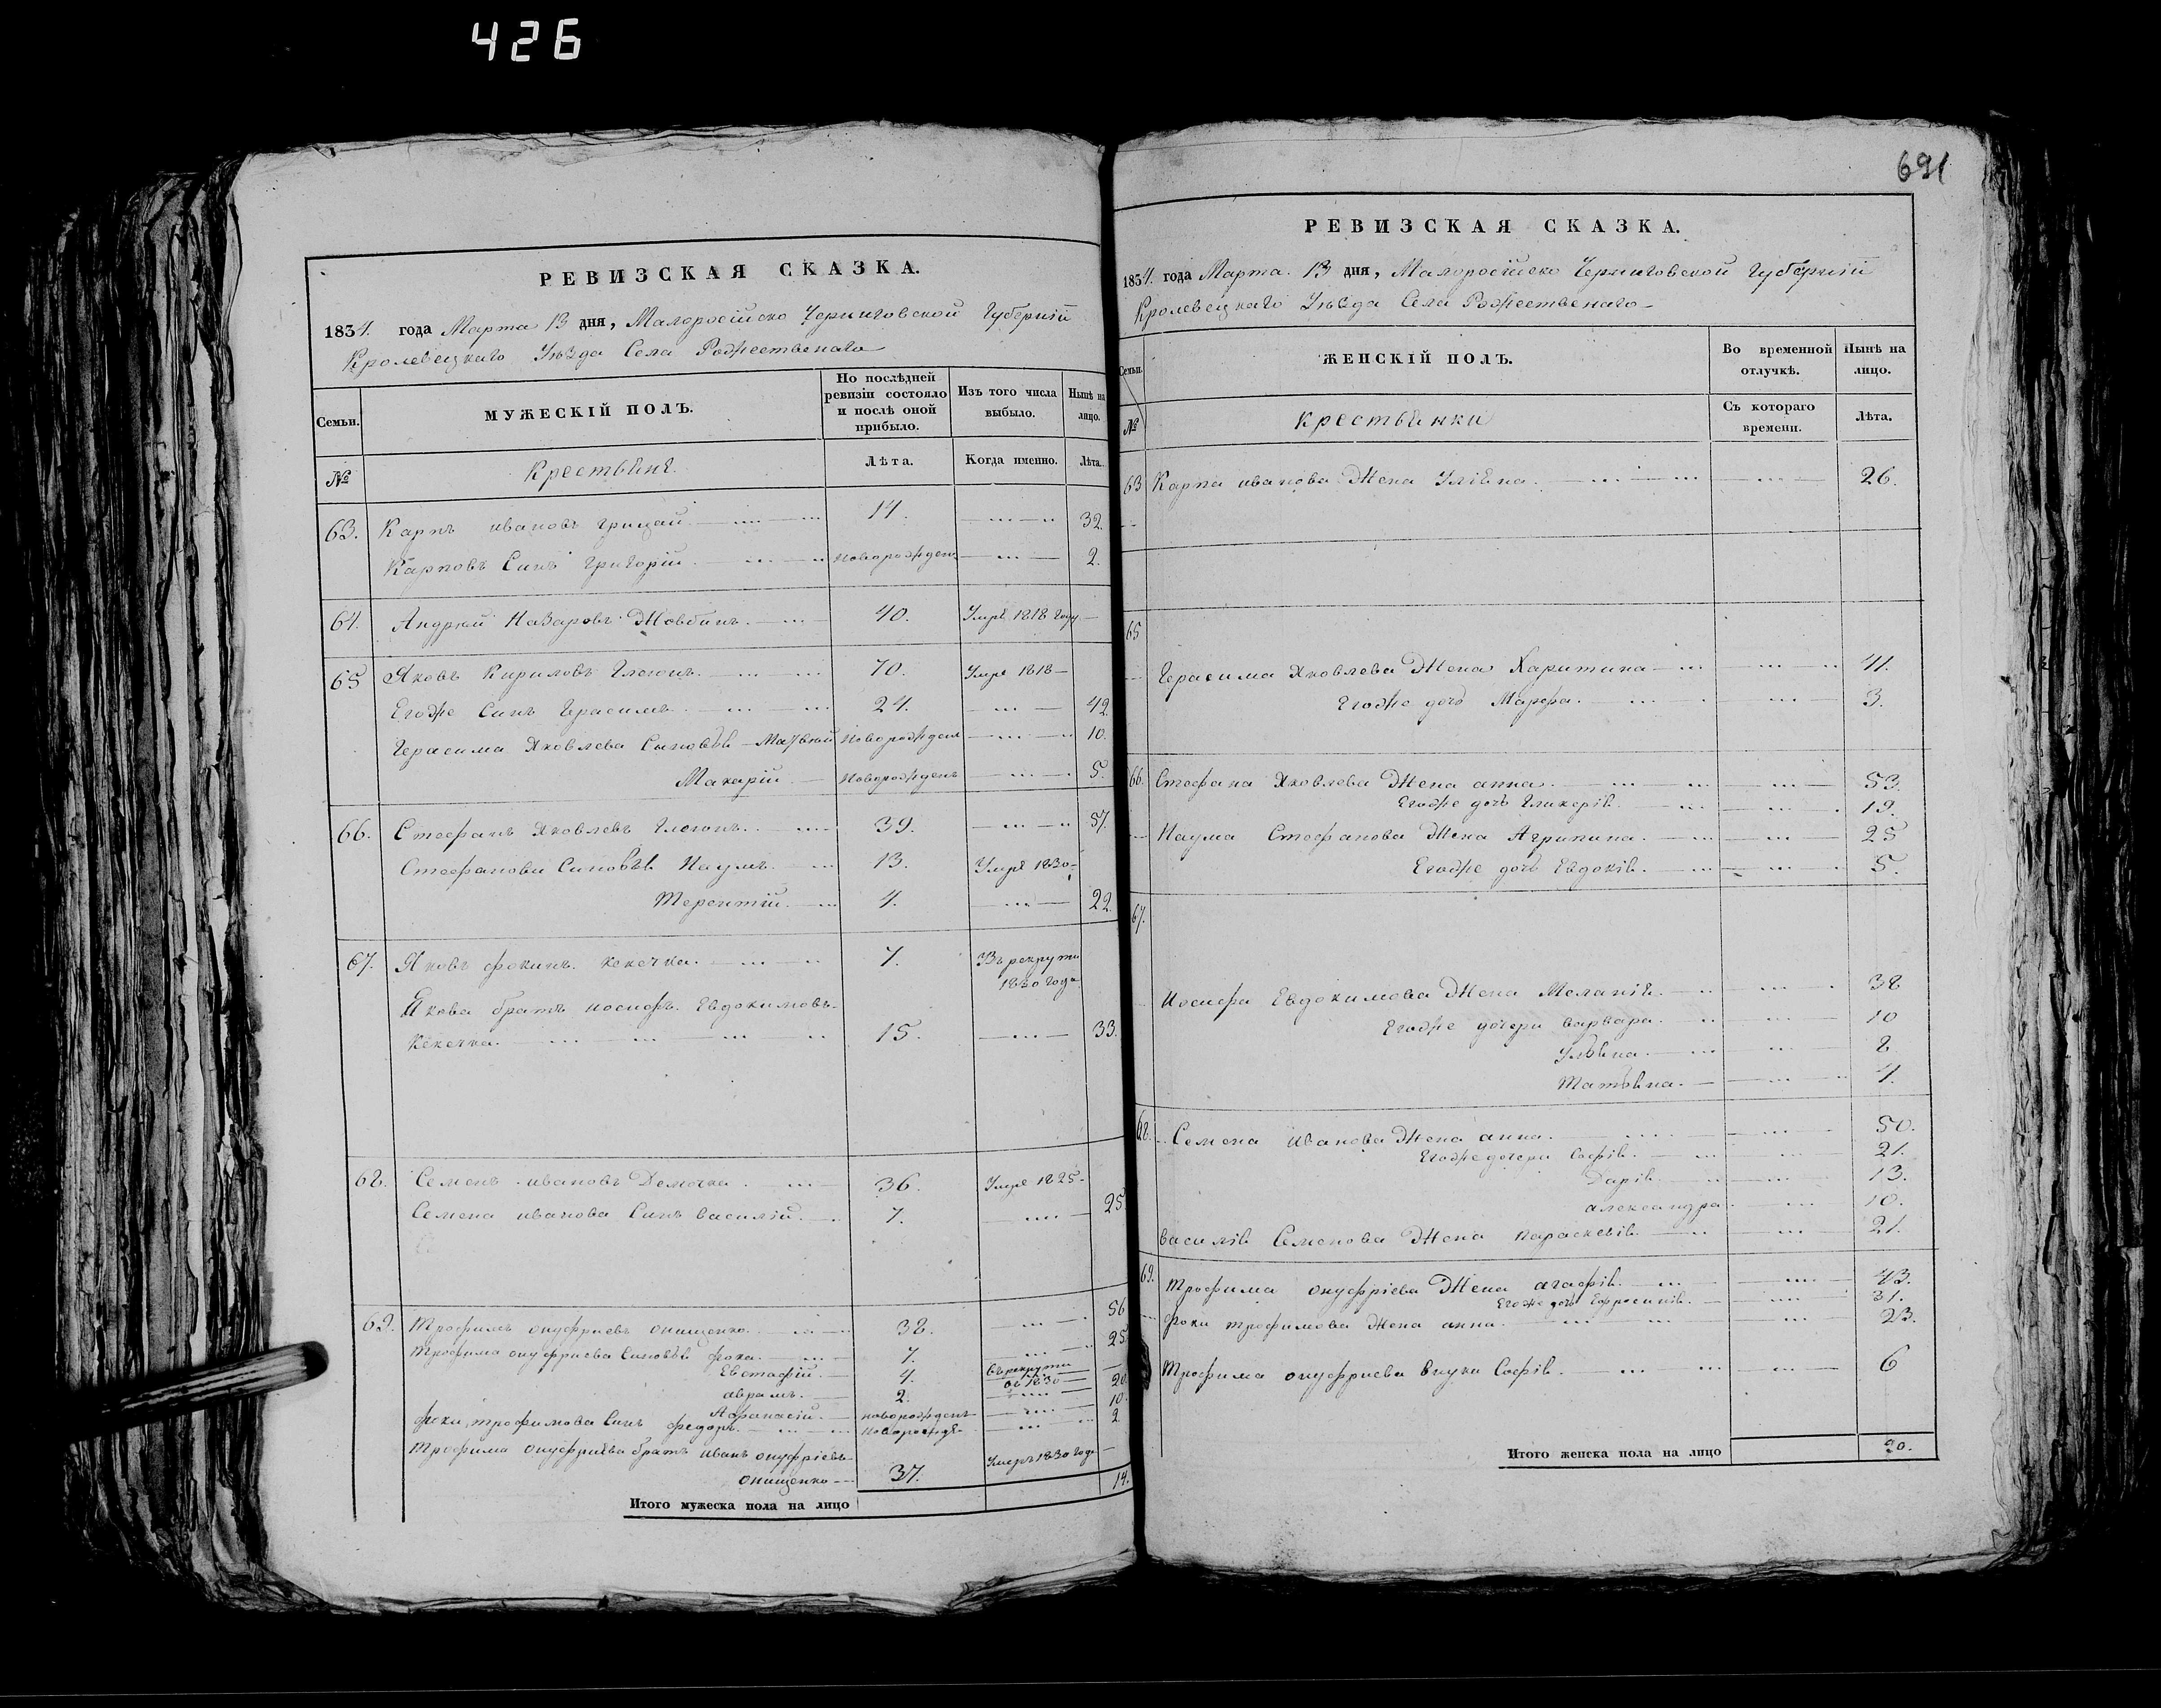 426
РЕВИЗСКАЯ СКАЗКА.
1834. года Марта 13 дня, Малоросійско Черниговской Губерніи
Кролевецкаго Уѣзда Села Рождественаго
Семьи.
МУЖЕСКІЙ ПОЛЪ.
По послѣдней ревизіи состояло и послѣ оной прибыло.
Изъ того числа выбыло.
Нынѣ на лицо.
№
Крестьяне.
Лѣта.
Когда именно.
Лѣта.
63. Карпъ ивановъ грицай. 14. 32.
Карповъ Синъ григорій. новорожден. 2.
64. Андрѣй Назаровъ Жовбинъ. 40. Умре 1818 году
65 Яковъ Кириловъ 70. Умре 1818
Егоже Синъ Герасимъ 24. 42.
Герасима Яковлева Сыновья Матвѣй новорожден 10.
Макарій новорожденъ 5.
66. Стефанъ Яковлевъ 39. 57.
Стефанови Синовья Наумъ. 13. Умре 1830
Терентій. 4. 22.
67. Яковъ фокинъ. кекечка. 7. Въ рекрути
1830 года
Якова братъ иосифъ. Евдокимовъ
Кекечка. 15. 33.
68. Семенъ ивановъ Демочка. 36. Умре 1825
Семена иванова Синъ василій. 7. 25
69. Трофимъ онуфриевъ онищенко. 38. 56
Трофима онуфриева Синовья фока. 7. 25.
Евстафій. 4. въ рекрути
1830
аврамъ. 2. 20.
Афанасій. новорожденъ 10.
фоки трофимова Синъ федоръ. новорожде 2
Трофима Онуфриева братъ иванъ онуфріевъ
онищенко 37. Умеръ 1830 года
Итого мужеска пола на лицо 14.
691
РЕВИЗСКАЯ СКАЗКА.
1834. года Марта. 13 дня, Малоросійско Черниговской Губерніи
Кролевецкаго Уѣзда Села Рождественаго
Семьи.
ЖЕНСКІЙ ПОЛЪ.
Во временной отлучкѣ.
Нынѣ на лицо.
№
крестьянки
Съ котораго времени.
Лѣта.
63 Карпа иванова Жена Уліяна. 26.
65
Герасима Яковлева Жена Харитина 41.
Егоже дочь Марфа. 3.
66. Стефана Яковлева Жена анна. 53.
Егоже дочь Гликерія. 19.
Наума Стефанова Жена Агрипина. 25
Егоже дочь Евдокія. 5.
67.
Иосифа Евдокимова Жена Меланія. 38
Егоже дочери варвара. 10
Ульяна. 8
Татьяна. 4.
68. Семена иванова Жена анна. 50.
Егоже дочери Софія. 21.
Дарія. 13.
александра. 10.
василія Семенова Жена параскевія. 21.
69. Трофима онуфріева Жена агафія. 43.
Егоже дочь Ефросинія. 31.
фоки трофимова Жена анна. 23.
Трофима онуфриева внука Софія. 6
Итого женска пола на лицо 20.